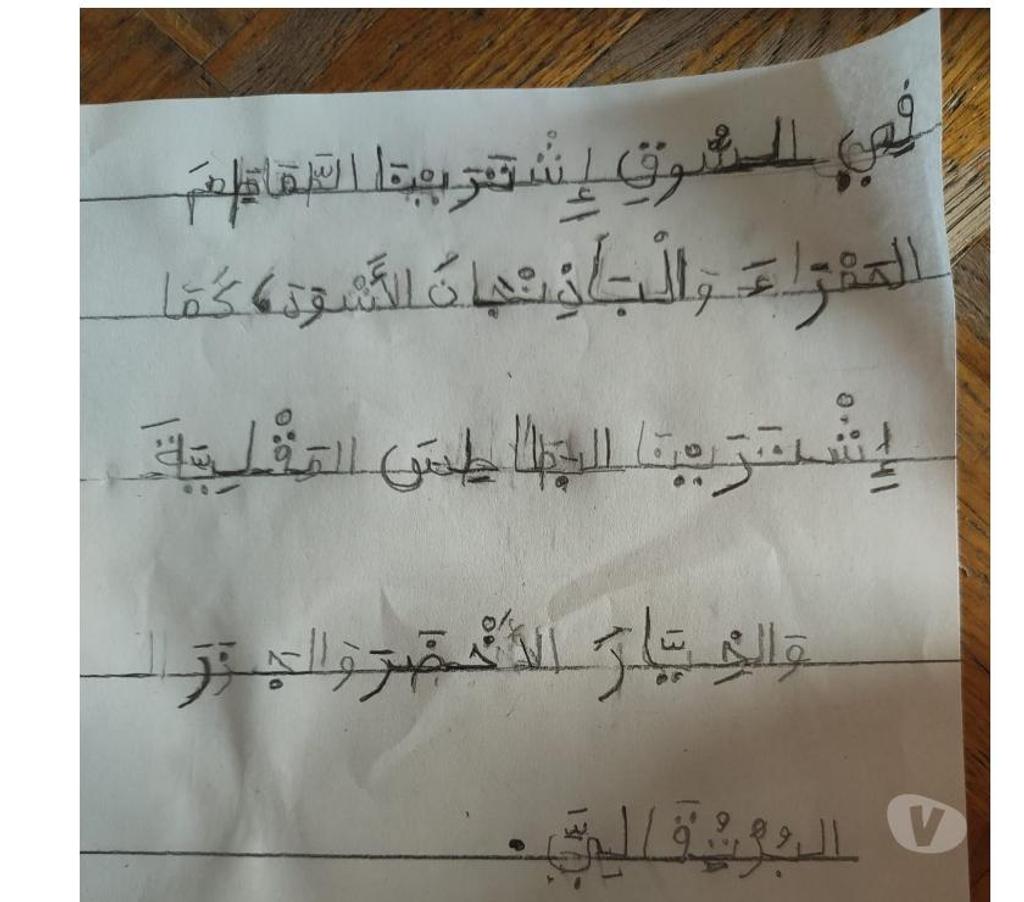 في السُّوقِ إِشْتَرَيْنَا الطَّمَاطِمَ
الحَمْرَاءَ وَالْبَاذِنْجَانَ الأَسْوَدَ، كَمَا
إِشْتَرَيْنَا البَطَاطِسَ المَقْلِيَّةَ
وَالخِيَّارَ الأَخْضَرَ وَالجَزَرَ ال
V